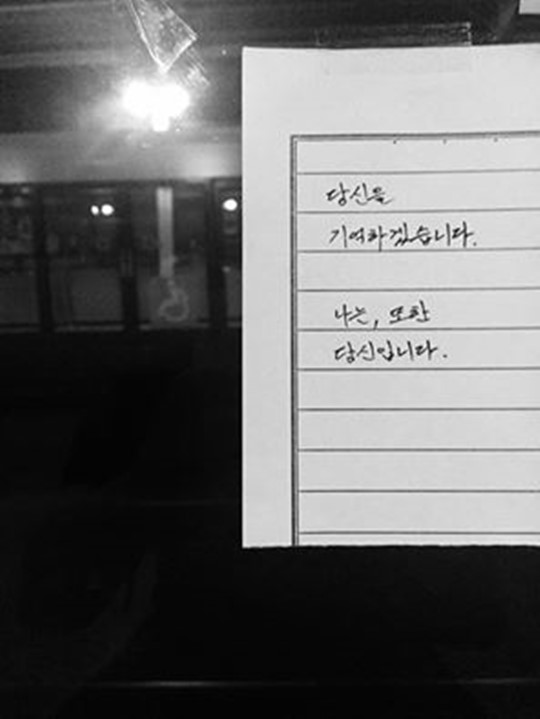 당신을
기억하겠습니다.
나는, 또한
당신입니다.